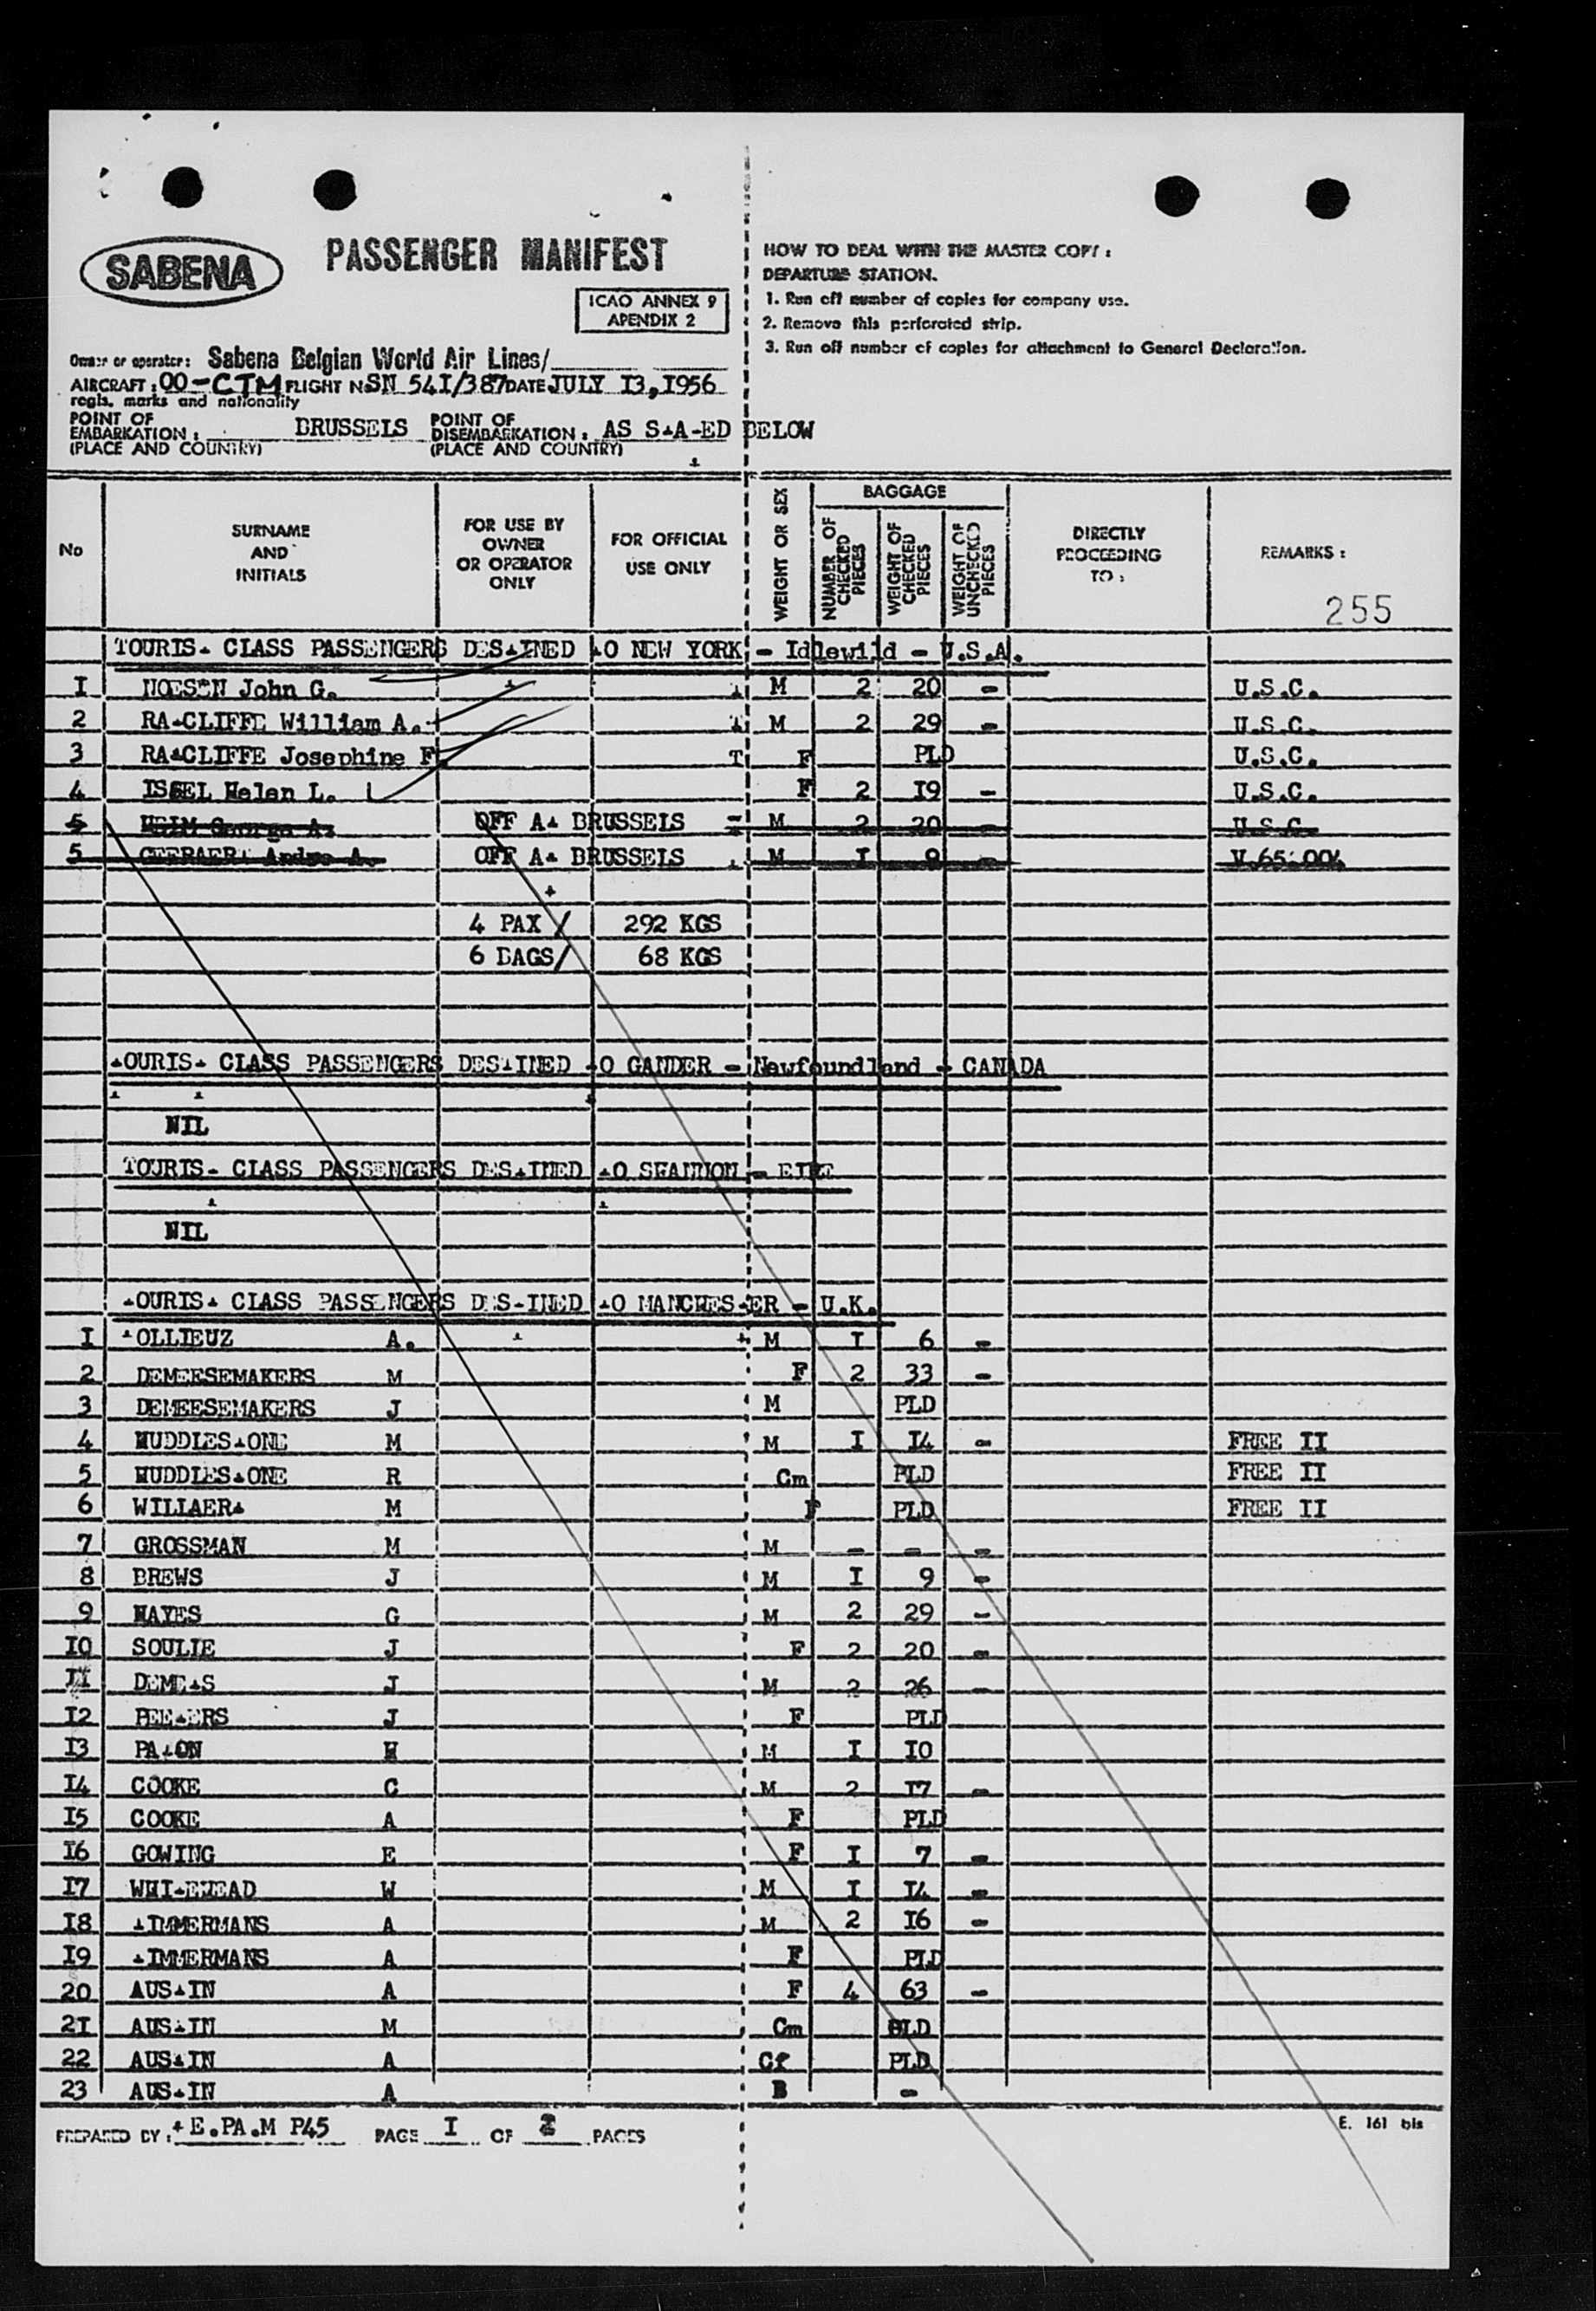 SABENA
PASSENGER MANIFEST
ICAO ANNEX 9
APENDIX 2
Owner or operator: Sabena Belgian World Air Lines/
AIRCRAFT: OO-CTM FLIGHT No SN 54I/387 DATE JULY I3, I956
regis. marks and nationality
POINT OF EMBARKATION: BRUSSELS POINT OF DISEMBARKATION: AS STATED BELOW
(PLACE AND COUNTRY) (PLACE AND COUNTRY)
HOW TO DEAL WITH THE MASTER COPY:
DEPARTURE STATION.
1. Run off number of copies for company use.
2. Remove this perforated strip.
3. Run off number of copies for attachment to General Declaration.
No SURNAME AND INITIALS FOR USE BY OWNER OR OPERATOR ONLY FOR OFFICIAL USE ONLY WEIGHT OR SEX BAGGAGE NUMBER OF CHECKED PIECES WEIGHT OF CHECKED PIECES WEIGHT OF UNCHECKED PIECES DIRECTLY PROCEEDING TO: REMARKS:
255
TOURIST CLASS PASSENGERS DESTINED TO NEW YORK - Idlewild - U.S.A.
I John G. M 2 20 - U.S.C.
2 RATCLIFFE William A. M 2 29 - U.S.C.
3 RATCLIFFE Josephine F. F PLD U.S.C.
4 ISSEL Helen L. F 2 I9 - U.S.C.
5 HEIM George A. OFF AT BRUSSELS M 2 20 - U.S.C.
5 GEERAERT Andre A. OFF AT BRUSSELS M I 9 - V.65.004
4 PAX / 292 KGS
6 BAGS/ 68 KGS
TOURIST CLASS PASSENGERS DESTINED TO GANDER - Newfoundland - CANADA
NIL
TOURIST CLASS PASSENGERS DESTINED TO SHANNON - EIRE
NIL
TOURIST CLASS PASSENGERS DESTINED TO MANCHESTER - U.K.
I TOLLIEUZ A. M I 6 -
2 DEMEESEMAKERS M F 2 33 -
3 DEMEESEMAKERS J M PLD
4 HUDDLESTONE M M I I4 - FREE II
5 HUDDLESTONE R Cm PLD FREE II
6 WILLAERT M F PLD FREE II
7 GROSSMAN M M - - -
8 BREWS J M I 9 -
9 HAYES G M 2 29 -
I0 SOULIE J F 2 20 -
II DEMETS J M 2 26 -
I2 PEETERS J F PLD
I3 PATON H M I I0
I4 COOKE C M 2 I7 -
I5 COOKE A F PLD
I6 GOWING E F I 7 -
I7 WHITEHEAD W M I I4 -
I8 TIMMERMANS A M 2 I6 -
I9 TIMMERMANS A F PLD
20 AUSTIN A F 4 63 -
2I AUSTIN M Cm PLD
22 AUSTIN A Cf PLD
23 AUSTIN A B -
PREPARED BY: T E.PA.M P45 PAGE I OF 2 PAGES
E. 161 bis